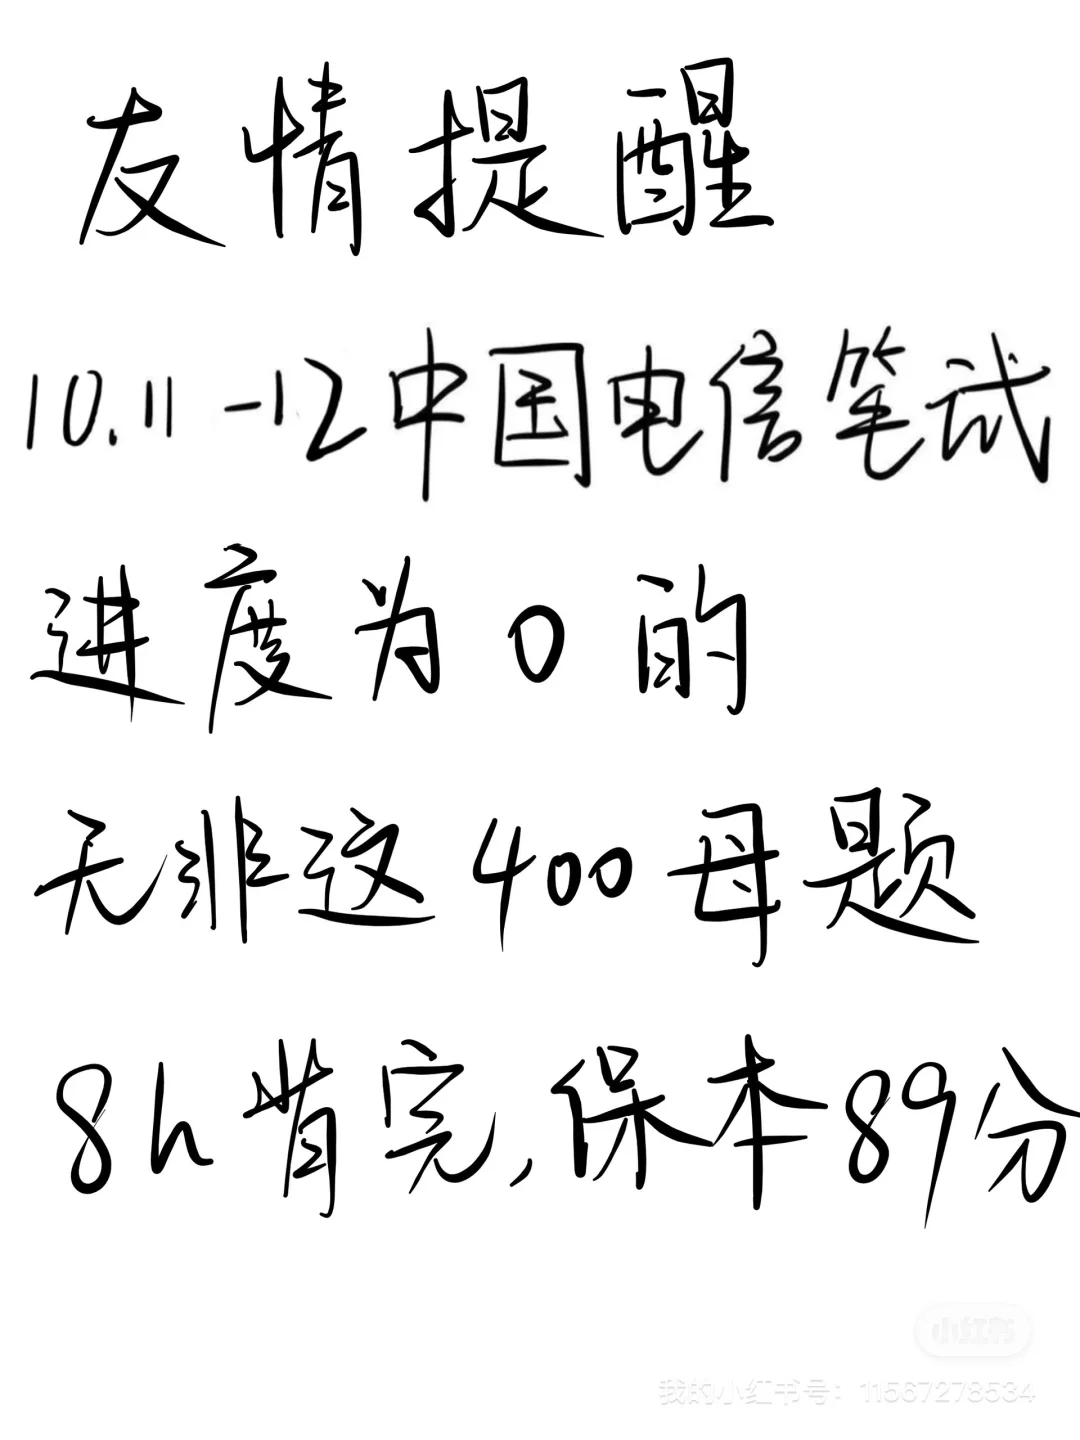 友情提醒
10.11-12中国电信笔试
进度为0的
无非这400母题
8h背完,保本89分
小红书
我的小红书号：11567278534